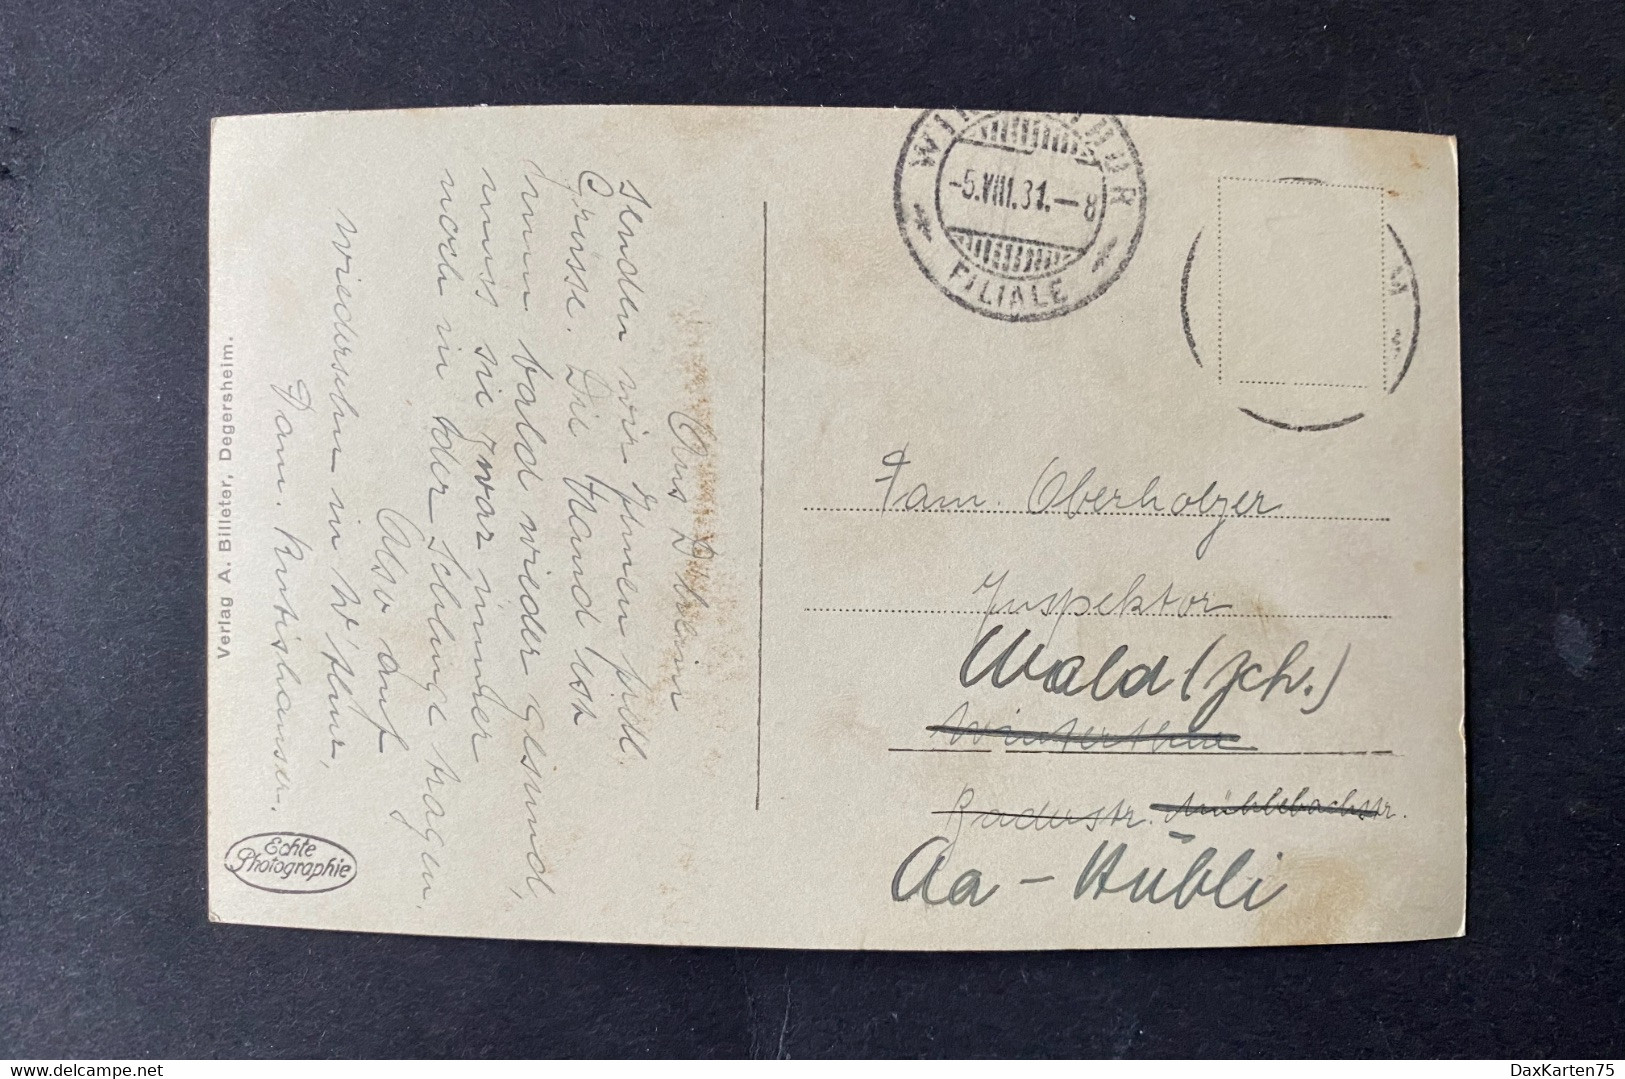 Aus D'heim
senden wir Ihnen frdl.
Grüsse. Die Hand ist
nun bald wieder gesund,
muss sie zwar immer
noch in der Schlinge tragen.
Also auf
Wiedersehn in W'thur,
Fam.
Verlag A. Billeter, Degersheim.
Echte
Photographie
WINTERTHUR
-5.VIII.31.-8
FILIALE
M
Fam. Oberholzer
Inspektor
Wald (Zch.)
Winterthur
Badustr. Mühlebachstr.
Aa - Hübli
DaxKarten75
delcampe.net